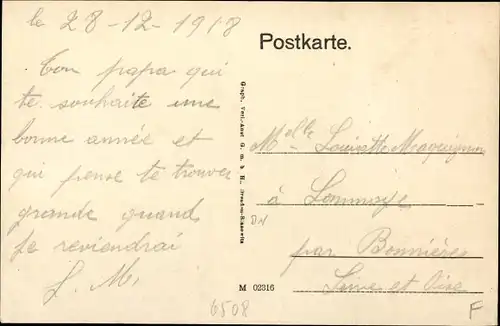 le 28-12-1918
Ton papa qui
te souhaite une
bonne année et
qui pense te trouver
grande quand
je reviendrai
J. M.
Postkarte.
Graph. Verl.-Anst. G. m. b. H., Dresden-
Melle Maquignon
à Lommoye
par Bonnières
Seine et Oise
M 02316
6508
F